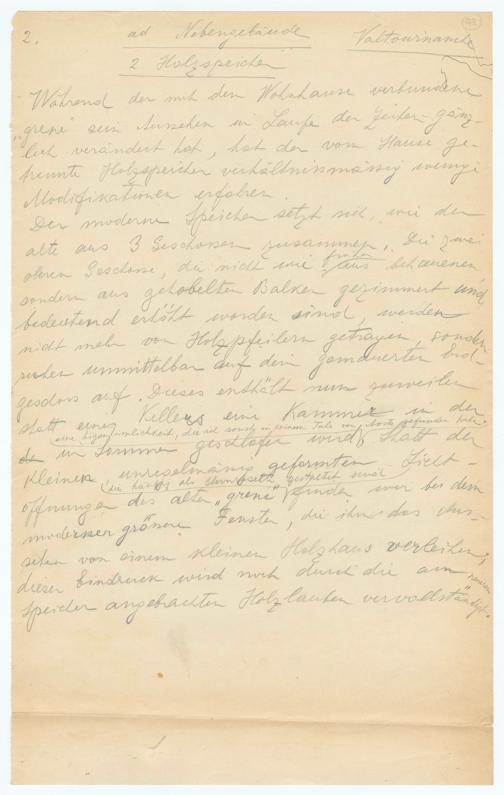 2. ad Nebengebäude Valtournanche
93
2 Holzspeicher
Während der mit dem Wohnhause verbundene
"grenè" sein Aussehen im Laufe der Zeiten gänz-
lich verändert hat, hat der vom Hause ge-
trennte Holzspeicher verhältnismässig wenige
Modifikationen erfahren.
Der moderne Speicher setzt sich, wie der
alte aus 3 Geschossen zusammen. Die zwei
oberen Geschosse, die nicht wie früher aus behauenen,
sondern aus gehobelten Balken gezimmert und
bedeutend erhöht worden sind, werden
nicht mehr von Holzpfeilern getragen, sondern
ruhen unmittelbar auf dem gemauerten Erd-
geschoss auf. Dieses enthält nun zuweilen
statt eines Kellers eine Kammer in der
eine Eigentümlichkeit, die ich sonst in keinem Tale von gefunden habe
im Sommer geschlafen wird. Statt der
kleinen unregelmässig geformten Licht-
öffnungen des alten "grenè" finden wir bei dem
modernen grössere Fenster, die ihm das Aus-
sehen von einem kleinen Holzhaus verleihen,
dieser Eindruck wird noch durch die am neuen
Speicher angebrachten Holzlauben vervollständigt.